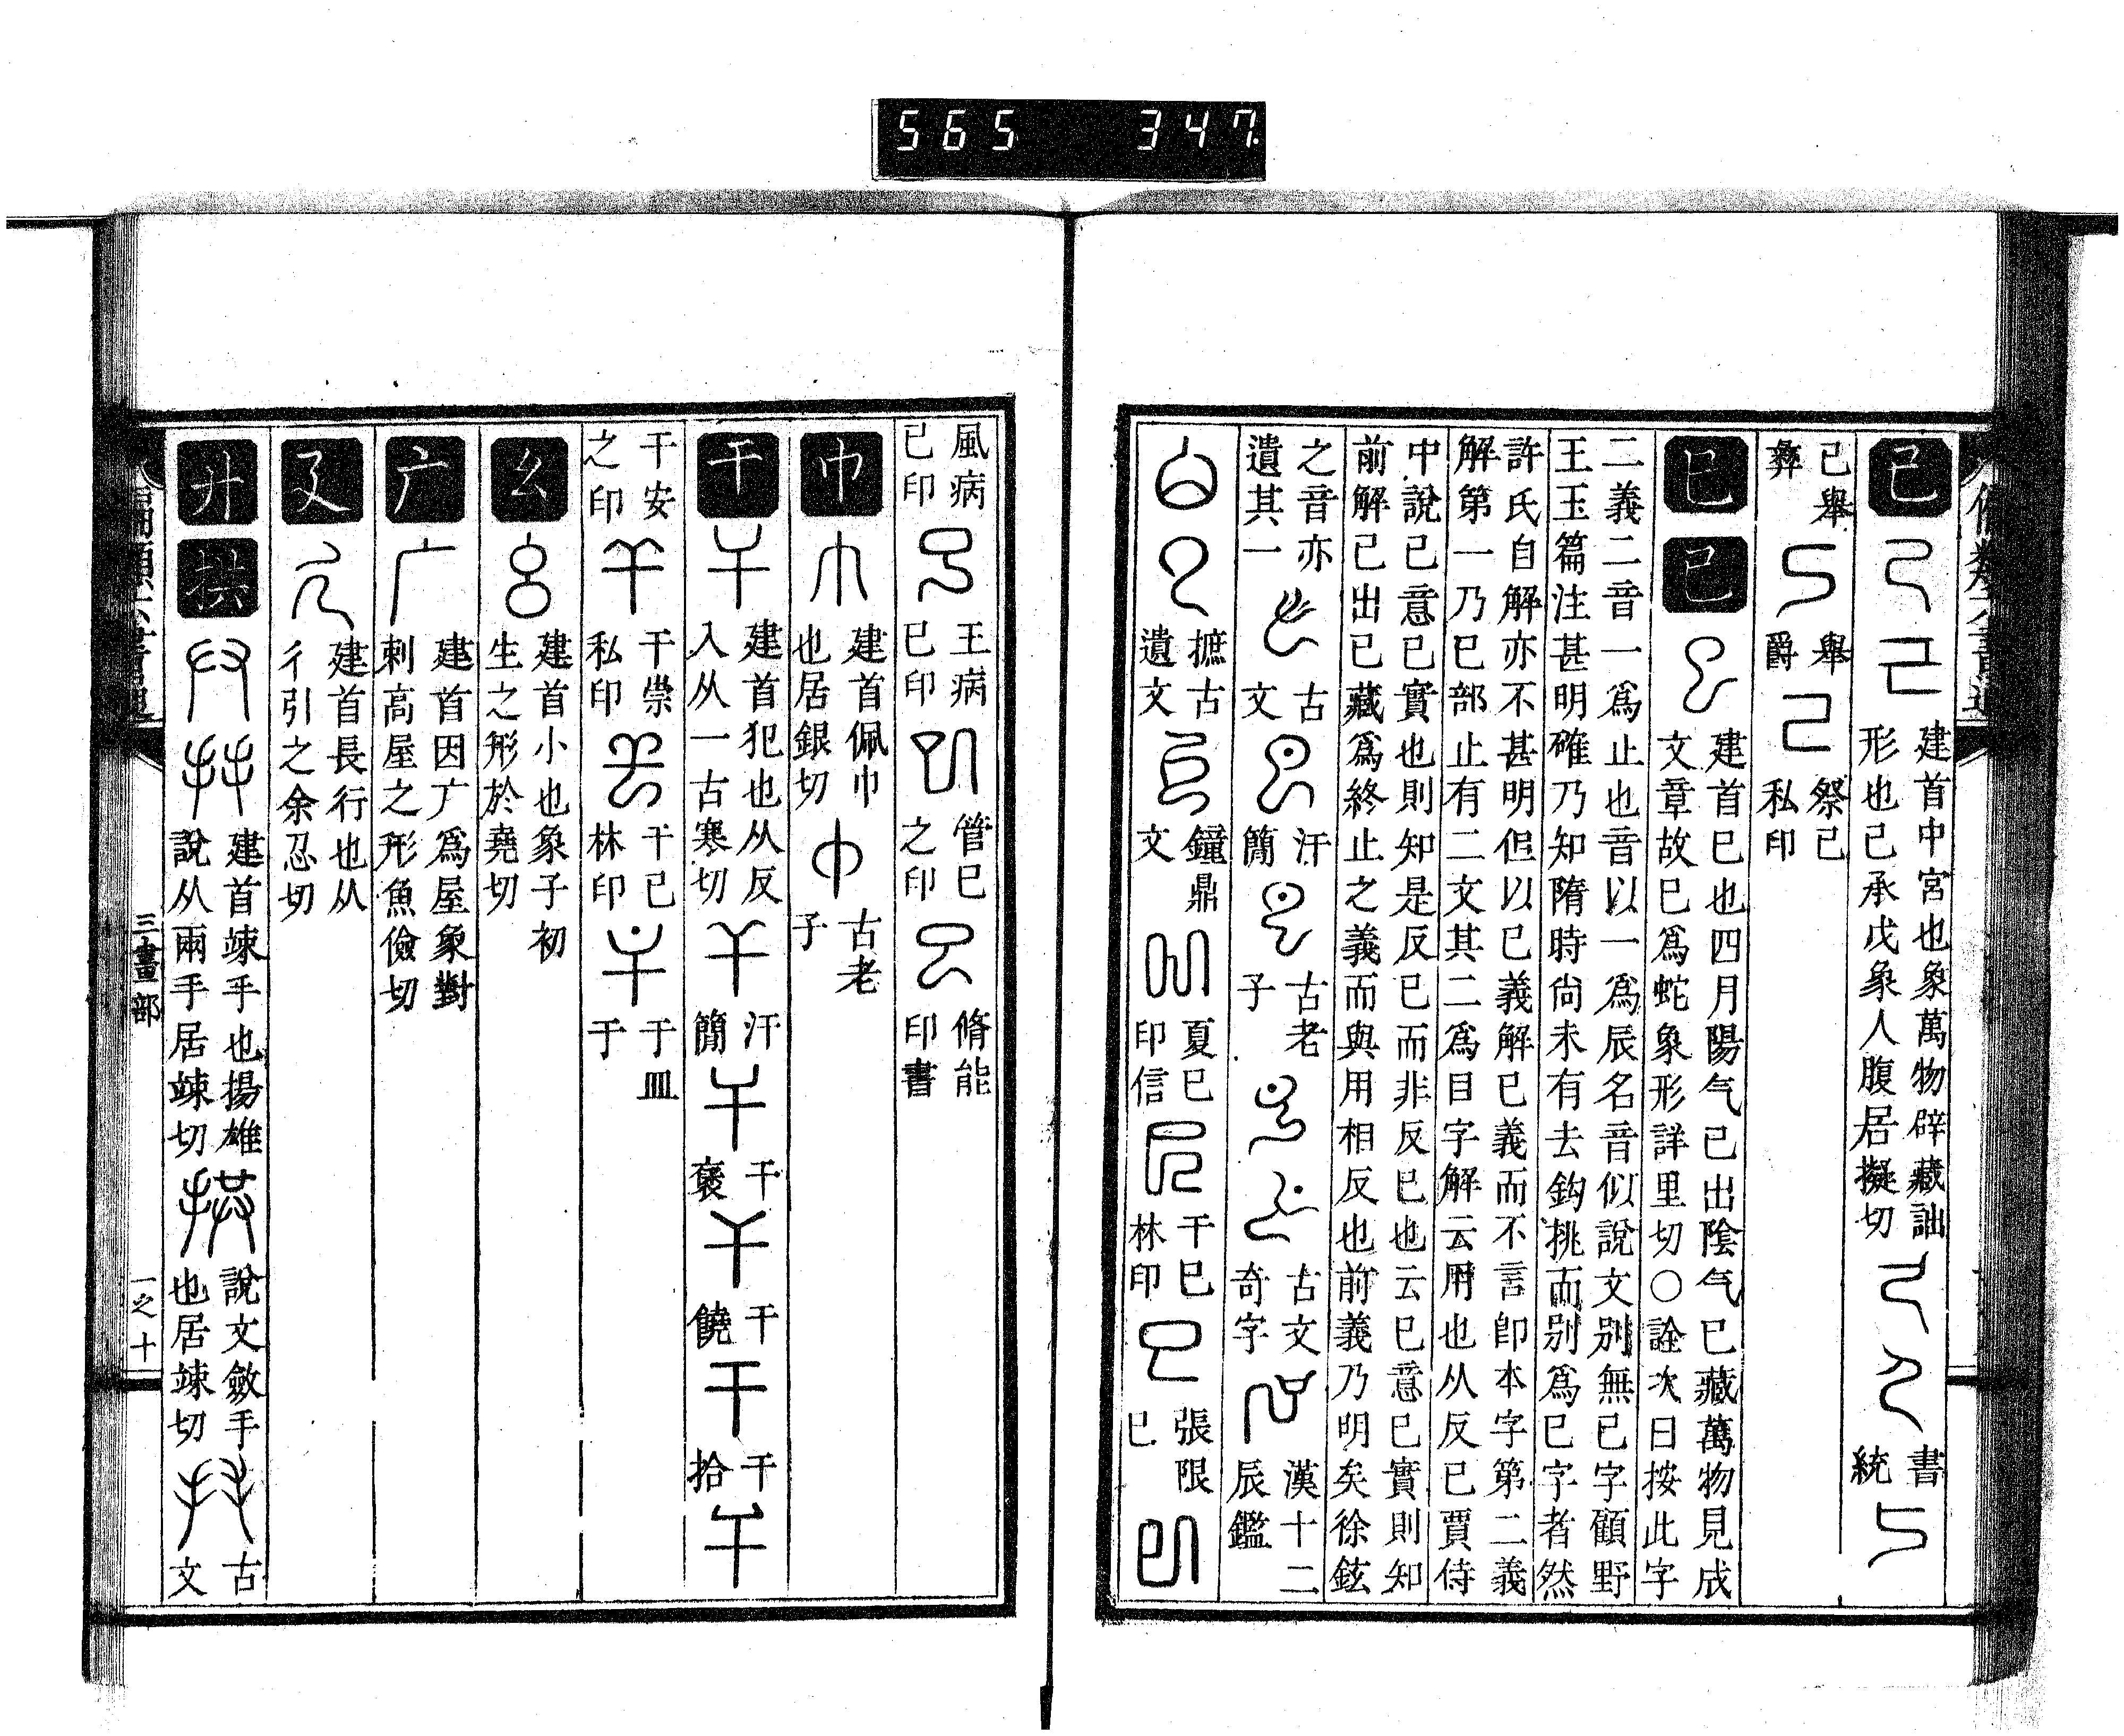 565 347
己
建首中宮也象萬物辟藏詘
形也己承戊象人腹居擬切
書
統
己舉
彝
舉
爵
祭己
私印
巳 已
建首巳也四月陽气已出陰气已藏萬物見成
文章故巳爲蛇象形詳里切〇詮次曰按此字
二義二音一爲止也音以一爲辰名音似說文別無已字顧野
王玉篇注甚明確乃知隋時尚未有去鈎挑而別爲已字者然
許氏自解亦不甚明但以已義解巳義而不言卽本字第二義
解第一乃巳部止有二文其二爲㠯字解云用也从反巳賈侍
中說已意已實也則知是反已而非反巳也云已意已實則知
前解已出已藏爲終止之義而與用相反也前義乃明矣徐鉉
之音亦
遺其一
古
文
汗
簡
古老
子
古文
奇字
漢十二
辰鑑
摭古
遺文
鐘鼎
文
夏巳
印信
干巳
林印
張限
巳
風病
已印
王病
已印
管巳
之印
脩能
印書
巾
建首佩巾
也居銀切
古老
子
干
建首犯也从反
入从一古寒切
汗
簡
干
褒
干
饒
干
拾
干安
之印
干崇
私印
干已
林印
于皿
于
幺
建首小也象子初
生之形於堯切
广
建首因厂爲屋象對
刺高屋之形魚儉切
廴
建首長行也从
彳引之余忍切
廾 拱
建首竦手也揚雄
說从兩手居竦切
說文斂手
也居竦切
古
文
三畫部
一之十